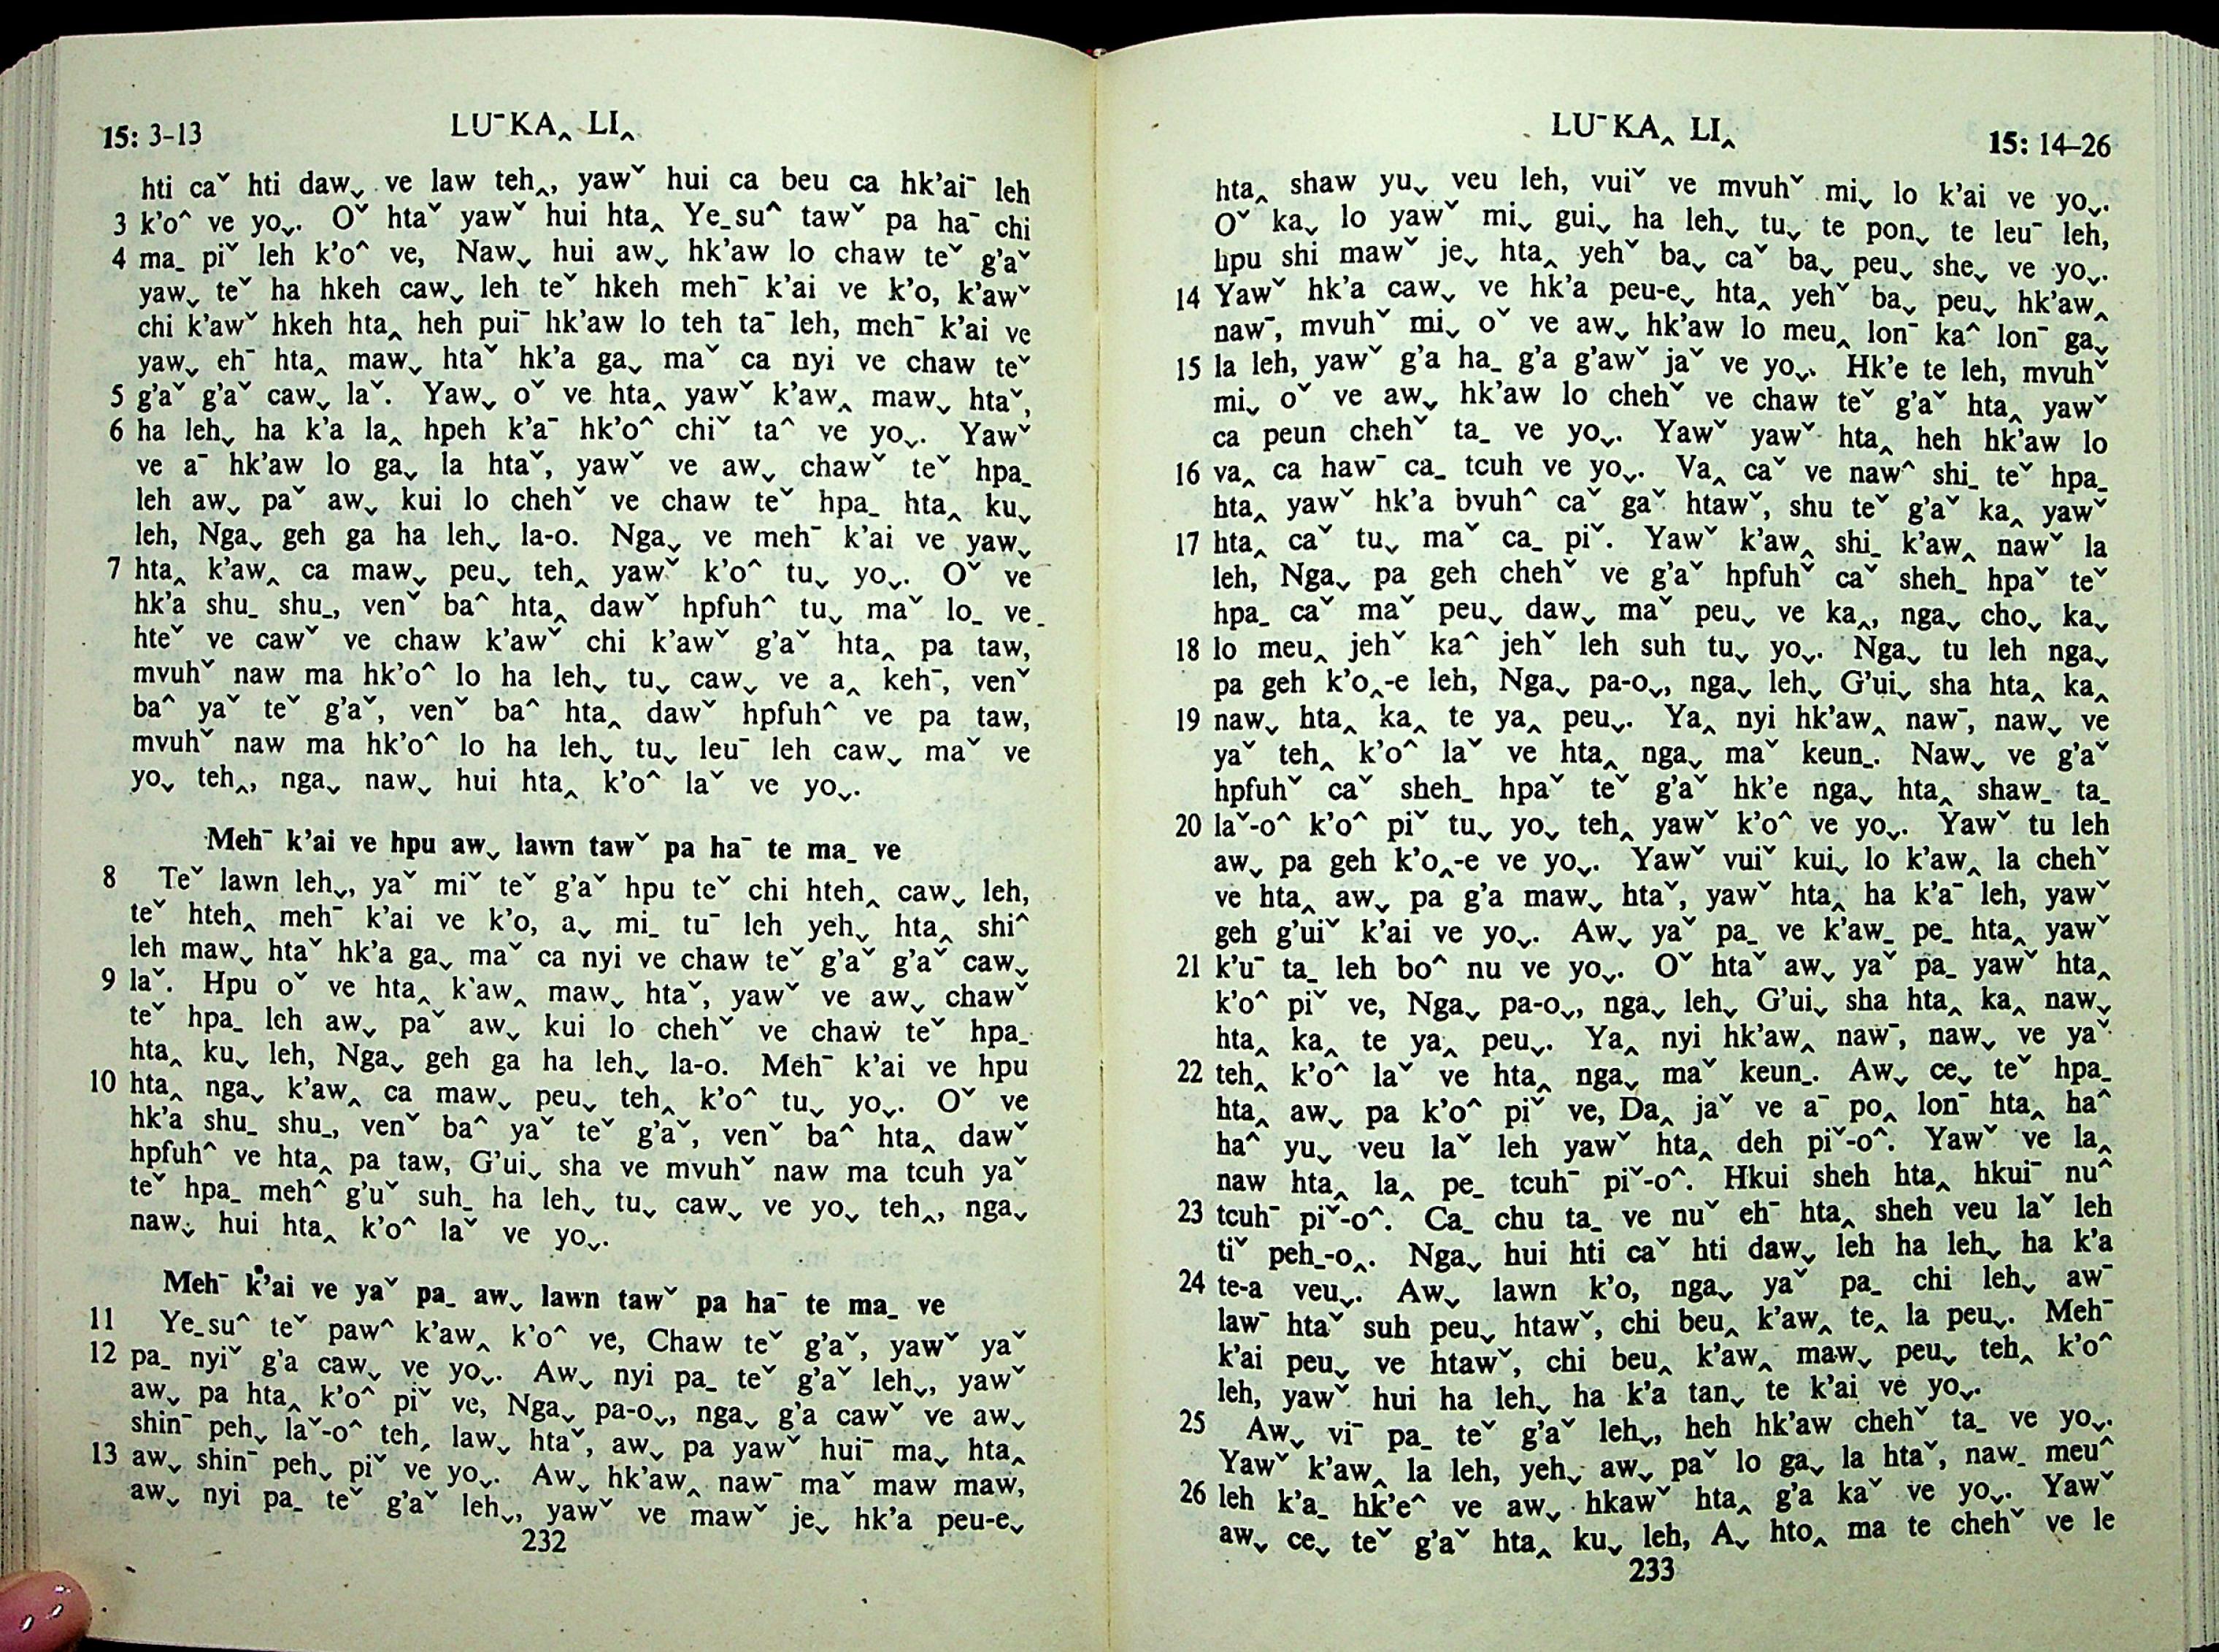 15: 3-13
LUˉKA‸ LI‸
hti caˇ hti daw⌄ ve law teh‸, yawˇ hui ca beu ca hk'aiˉ leh
3 k'o^ ve yo⌄. Oˇ htaˇ yawˇ hui hta‸ Ye_su^ tawˇ pa haˉ chi
4 ma_ piˇ leh k'o^ ve, Naw⌄ hui aw⌄ hk'aw lo chaw teˇ g'aˇ
yaw⌄ teˇ ha hkeh caw⌄ leh teˇ hkeh mehˉ k'ai ve k'o, k'awˇ
chi k'awˇ hkeh hta‸ heh puiˉ hk'aw lo teh taˉ leh, mehˉ k'ai ve
yaw⌄ ehˉ hta‸ maw⌄ htaˇ hk'a ga⌄ maˇ ca nyi ve chaw teˇ
5 g'aˇ g'aˇ caw⌄ laˇ. Yaw⌄ oˇ ve hta‸ yawˇ k'aw‸ maw⌄ htaˇ,
6 ha leh⌄ ha k'a la‸ hpeh k'aˉ hk'o^ chiˇ ta^ ve yo⌄. Yawˇ
ve aˉ hk'aw lo ga⌄ la htaˇ, yawˇ ve aw⌄ chawˇ teˇ hpa_
leh aw⌄ paˇ aw⌄ kui lo chehˇ ve chaw teˇ hpa_ hta‸ ku⌄
leh, Nga⌄ geh ga ha leh⌄ la-o. Nga⌄ ve mehˉ k'ai ve yaw⌄
7 hta‸ k'aw‸ ca maw⌄ peu⌄ teh‸ yawˇ k'o^ tu⌄ yo⌄. Oˇ ve
hk'a shu_ shu_, venˇ ba^ hta‸ dawˇ hpfuh^ tu⌄ maˇ lo_ ve_
hteˇ ve cawˇ ve chaw k'awˇ chi k'awˇ g'aˇ hta‸ pa taw,
mvuhˇ naw ma hk'o^ lo ha leh⌄ tu⌄ caw⌄ ve a‸ kehˉ, venˇ
ba^ yaˇ teˇ g'aˇ, venˇ ba^ hta‸ dawˇ hpfuh^ ve pa taw,
mvuhˇ naw ma hk'o^ lo ha leh⌄ tu⌄ leuˉ leh caw⌄ maˇ ve
yo⌄ teh‸, nga⌄ naw⌄ hui hta‸ k'o^ laˇ ve yo⌄.
Mehˉ k'ai ve hpu aw⌄ lawn tawˇ pa haˉ te ma_ ve
8 Teˇ lawn leh⌄, yaˇ miˇ teˇ g'aˇ hpu teˇ chi hteh‸ caw⌄ leh,
teˇ hteh‸ mehˉ k'ai ve k'o, a⌄ mi_ tuˉ leh yeh⌄ hta‸ shi^
leh maw⌄ htaˇ hk'a ga⌄ maˇ ca nyi ve chaw teˇ g'aˇ g'aˇ caw⌄
9 laˇ. Hpu oˇ ve hta‸ k'aw‸ maw⌄ htaˇ, yawˇ ve aw⌄ chawˇ
teˇ hpa_ leh aw⌄ paˇ aw⌄ kui lo chehˇ ve chaw teˇ hpa_
hta‸ ku⌄ leh, Nga⌄ geh ga ha leh⌄ la-o. Mehˉ k'ai ve hpu
10 hta‸ nga⌄ k'aw‸ ca maw⌄ peu⌄ teh‸ k'o^ tu⌄ yo⌄. Oˇ ve
hk'a shu_ shu_, venˇ ba^ yaˇ teˇ g'aˇ, venˇ ba^ hta‸ dawˇ
hpfuh^ ve hta‸ pa taw, G'ui⌄ sha ve mvuhˇ naw ma tcuh yaˇ
teˇ hpa_ meh^ g'uˇ suh_ ha leh⌄ tu⌄ caw⌄ ve yo⌄ teh‸, nga⌄
naw⌄ hui hta‸ k'o^ laˇ ve yo⌄.
Mehˉ k'ai ve yaˇ pa_ aw⌄ lawn tawˇ pa haˉ te ma_ ve
11 Ye_su^ teˇ paw^ k'aw‸ k'o^ ve, Chaw teˇ g'aˇ, yawˇ yaˇ
12 pa_ nyiˇ g'a caw⌄ ve yo⌄. Aw⌄ nyi pa_ teˇ g'aˇ leh⌄, yawˇ
aw⌄ pa hta‸ k'o^ piˇ ve, Nga⌄ pa-o⌄, nga⌄ g'a cawˇ ve aw⌄
shinˉ peh⌄ laˇ-o^ teh‸ law⌄ htaˇ, aw⌄ pa yawˇ huiˉ ma⌄ hta‸
13 aw⌄ shinˉ peh⌄ piˇ ve yo⌄. Aw⌄ hk'aw‸ nawˉ maˇ maw maw,
aw⌄ nyi pa_ teˇ g'aˇ leh⌄, yawˇ ve mawˇ je⌄ hk'a peu-e⌄
232
LUˉKA‸ LI‸
15: 14-26
hta‸ shaw yu⌄ veu leh, vuiˇ ve mvuhˇ mi⌄ lo k'ai ve yo⌄.
Oˇ ka⌄ lo yawˇ mi⌄ gui⌄ ha leh⌄ tu⌄ te pon⌄ te leuˉ leh,
hpu shi mawˇ je⌄ hta‸ yehˇ ba⌄ caˇ ba⌄ peu⌄ she⌄ ve yo⌄.
14 Yawˇ hk'a caw⌄ ve hk'a peu-e⌄ hta‸ yehˇ ba⌄ peu⌄ hk'aw‸
nawˉ, mvuhˇ mi⌄ oˇ ve aw⌄ hk'aw lo meu‸ lonˉ ka^ lonˉ ga⌄
15 la leh, yawˇ g'a ha_ g'a g'awˇ jaˇ ve yo⌄. Hk'e te leh, mvuhˇ
mi⌄ oˇ ve aw⌄ hk'aw lo chehˇ ve chaw teˇ g'aˇ hta‸ yawˇ
ca peun chehˇ ta_ ve yo⌄. Yawˇ yawˇ hta‸ heh hk'aw lo
16 va‸ ca hawˉ ca_ tcuh ve yo⌄. Va‸ caˇ ve naw^ shi_ teˇ hpa_
hta‸ yawˇ hk'a bvuh^ caˇ gaˇ htawˇ, shu teˇ g'aˇ ka‸ yawˇ
17 hta‸ caˇ tu⌄ maˇ ca_ piˇ. Yawˇ k'aw‸ shi_ k'aw‸ nawˇ la
leh, Nga⌄ pa geh chehˇ ve g'aˇ hpfuhˇ caˇ sheh_ hpaˇ teˇ
hpa_ caˇ maˇ peu⌄ daw⌄ maˇ peu⌄ ve ka‸, nga⌄ cho⌄ ka⌄
18 lo meu‸ jehˇ ka^ jehˇ leh suh tu⌄ yo⌄. Nga⌄ tu leh nga⌄
pa geh k'o‸-e leh, Nga⌄ pa-o⌄, nga⌄ leh⌄ G'ui⌄ sha hta‸ ka‸
19 naw⌄ hta‸ ka‸ te ya‸ peu⌄. Ya‸ nyi hk'aw‸ nawˉ, naw⌄ ve
yaˇ teh‸ k'o^ laˇ ve hta‸ nga⌄ maˇ keun_. Naw⌄ ve g'aˇ
hpfuhˇ caˇ sheh_ hpaˇ teˇ g'aˇ hk'e nga⌄ hta‸ shaw_ ta_
20 laˇ-o^ k'o^ piˇ tu⌄ yo⌄ teh‸ yawˇ k'o^ ve yo⌄. Yawˇ tu leh
aw⌄ pa geh k'o‸-e ve yo⌄. Yawˇ vuiˇ kui⌄ lo k'aw‸ la chehˇ
ve hta‸ aw⌄ pa g'a maw⌄ htaˇ, yawˇ hta‸ ha k'aˉ leh, yawˇ
geh g'uiˇ k'ai ve yo⌄. Aw⌄ yaˇ pa_ ve k'aw_ pe_ hta‸ yawˇ
21 k'uˉ ta_ leh bo^ nu ve yo⌄. Oˇ htaˇ aw⌄ yaˇ pa_ yawˇ hta‸
k'o^ piˇ ve, Nga⌄ pa-o⌄, nga⌄ leh⌄ G'ui⌄ sha hta‸ ka‸ naw⌄
hta‸ ka‸ te ya‸ peu⌄. Ya‸ nyi hk'aw‸ nawˉ, naw⌄ ve yaˇ
22 teh‸ k'o^ laˇ ve hta‸ nga⌄ maˇ keun_. Aw⌄ ce⌄ teˇ hpa_
hta‸ aw⌄ pa k'o^ piˇ ve, Da‸ jaˇ ve aˉ po‸ lonˉ hta‸ ha^
ha^ yu⌄ veu laˇ leh yawˇ hta‸ deh piˇ-o^. Yawˇ ve la‸
naw hta‸ la‸ pe_ tcuhˉ piˇ-o^. Hkui sheh hta‸ hkuiˉ nu^
23 tcuhˉ piˇ-o^. Ca_ chu ta_ ve nuˇ ehˉ hta‸ sheh veu laˇ leh
tiˇ peh_-o‸. Nga⌄ hui hti caˇ hti daw⌄ leh ha leh⌄ ha k'a
24 te-a veu⌄. Aw⌄ lawn k'o, nga⌄ yaˇ pa_ chi leh⌄ awˉ
lawˉ htaˇ suh peu⌄ htawˇ, chi beu‸ k'aw‸ te‸ la peu⌄. Mehˉ
k'ai peu⌄ ve htawˇ, chi beu‸ k'aw‸ maw⌄ peu⌄ teh‸ k'o^
leh, yawˇ hui ha leh⌄ ha k'a tan⌄ te k'ai ve yo⌄.
25 Aw⌄ viˉ pa_ teˇ g'aˇ leh⌄, heh hk'aw chehˇ ta_ ve yo⌄.
Yawˇ k'aw‸ la leh, yeh⌄ aw⌄ paˇ lo ga⌄ la htaˇ, naw_ meu^
26 leh k'a_ hk'e^ ve aw⌄ hkawˇ hta‸ g'a kaˇ ve yo⌄. Yawˇ
aw⌄ ce⌄ teˇ g'aˇ hta‸ ku⌄ leh, A⌄ hto‸ ma te chehˇ ve le
233